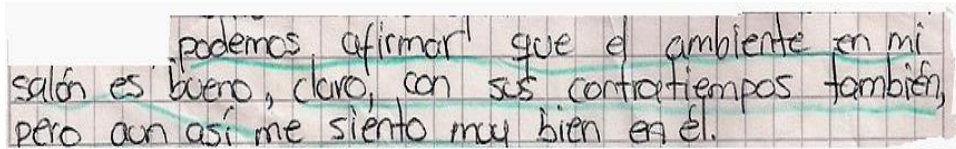 podemos afirmar que el ambiente en mi
salón es bueno, claro, con sus contratiempos también,
pero aun así me siento muy bien en él.